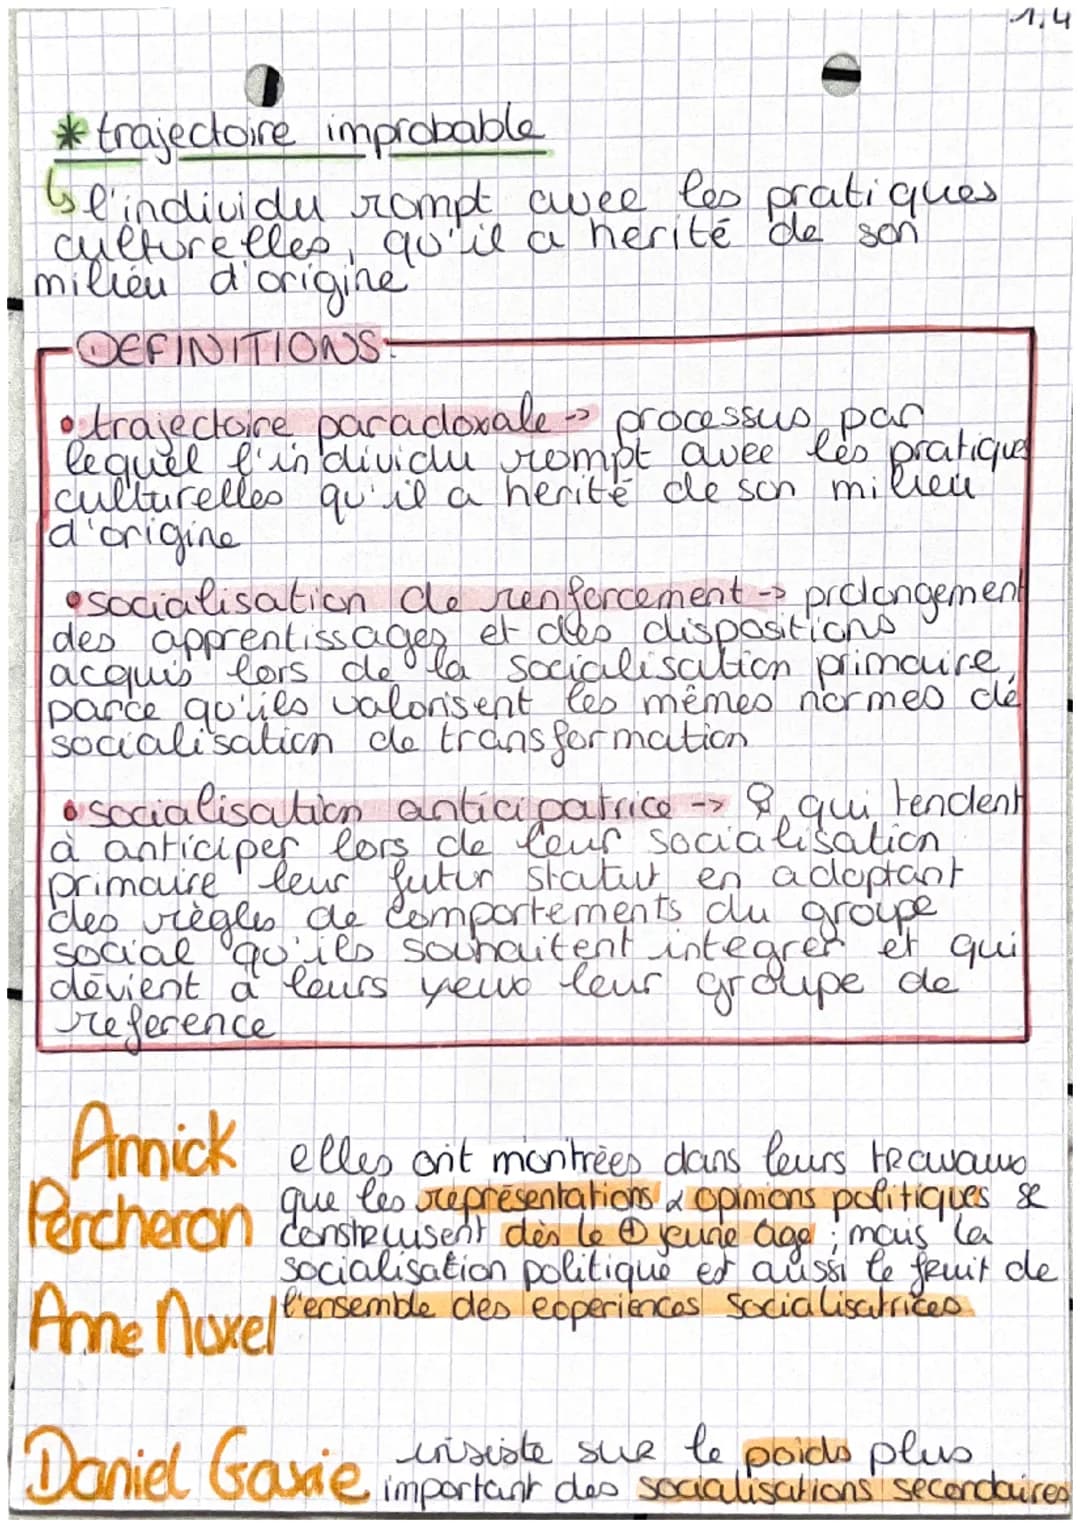 1.4
* trajectoire improbable
↳ l'individu rompt avec les pratiques
culturelles, qu'il a herité de son
milieu d'origine
DEFINITIONS:
• trajectoire paradoxale -> processus par
lequel l'individu rompt avec les pratiques
culturelles qu'il a herité de son milieu
d'origine
• socialisation de renforcement -> prolongement
des apprentissages et des dispositions
acquis lors de la socialisation primaire,
parce qu'ils valorisent les mêmes normes de
socialisation de transformation
• socialisation anticipatrice -> qui tendent
à anticiper lors de leur socialisation
primaire leur futur statut en adoptant
des règles de comportements du groupe
social qu'ils souhaitent integrer et qui
devient à leurs yeux leur groupe de
reference
Annick
Percheron
Anne Muxel
elles ont montrées dans leurs travaux
que les représentations & opinions politiques se
construisent dès le ⊕ jeune âge ; mais la
socialisation politique est aussi le fruit de
l'ensemble des experiences socialisatrices
Daniel Gaxie insiste sur le poids plus
important des socialisations secondaires